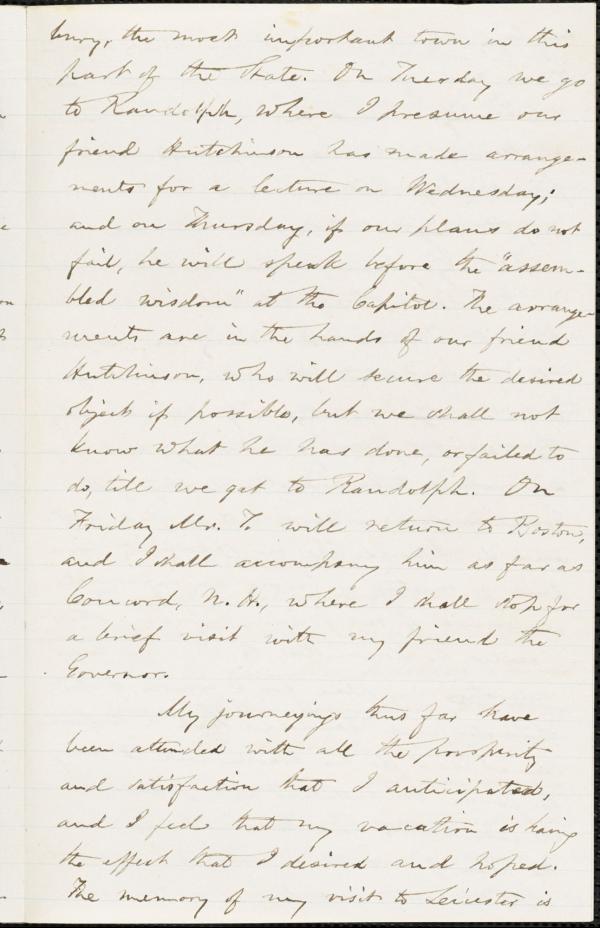 bury, the most important town in this
part of the State. On Tuesday we go
to Randolph, where I presume our
friend Hutchinson has made arrange-
ments for a lecture on Wednesday;
and on Thursday, if our plans do not
fail, he will speak before the "assem-
bled wisdom" at the Capitol. The arrange-
ments are in the hands of our friend
Hutchinson, who will secure the desired
object if possible, but we shall not
know what he has done, or failed to
do, till we get to Randolph. On
Friday Mr. T. will return to Boston,
and I shall accompany him as far as
Concord, N. H., where I shall stop for
a brief visit with my friend the
Governor.
My journeyings thus far have
been attended with all the prosperity
and satisfaction that I anticipated,
and I feel that my vacation is having
the effect that I desired and hoped.
The memory of my visit to Leicester is